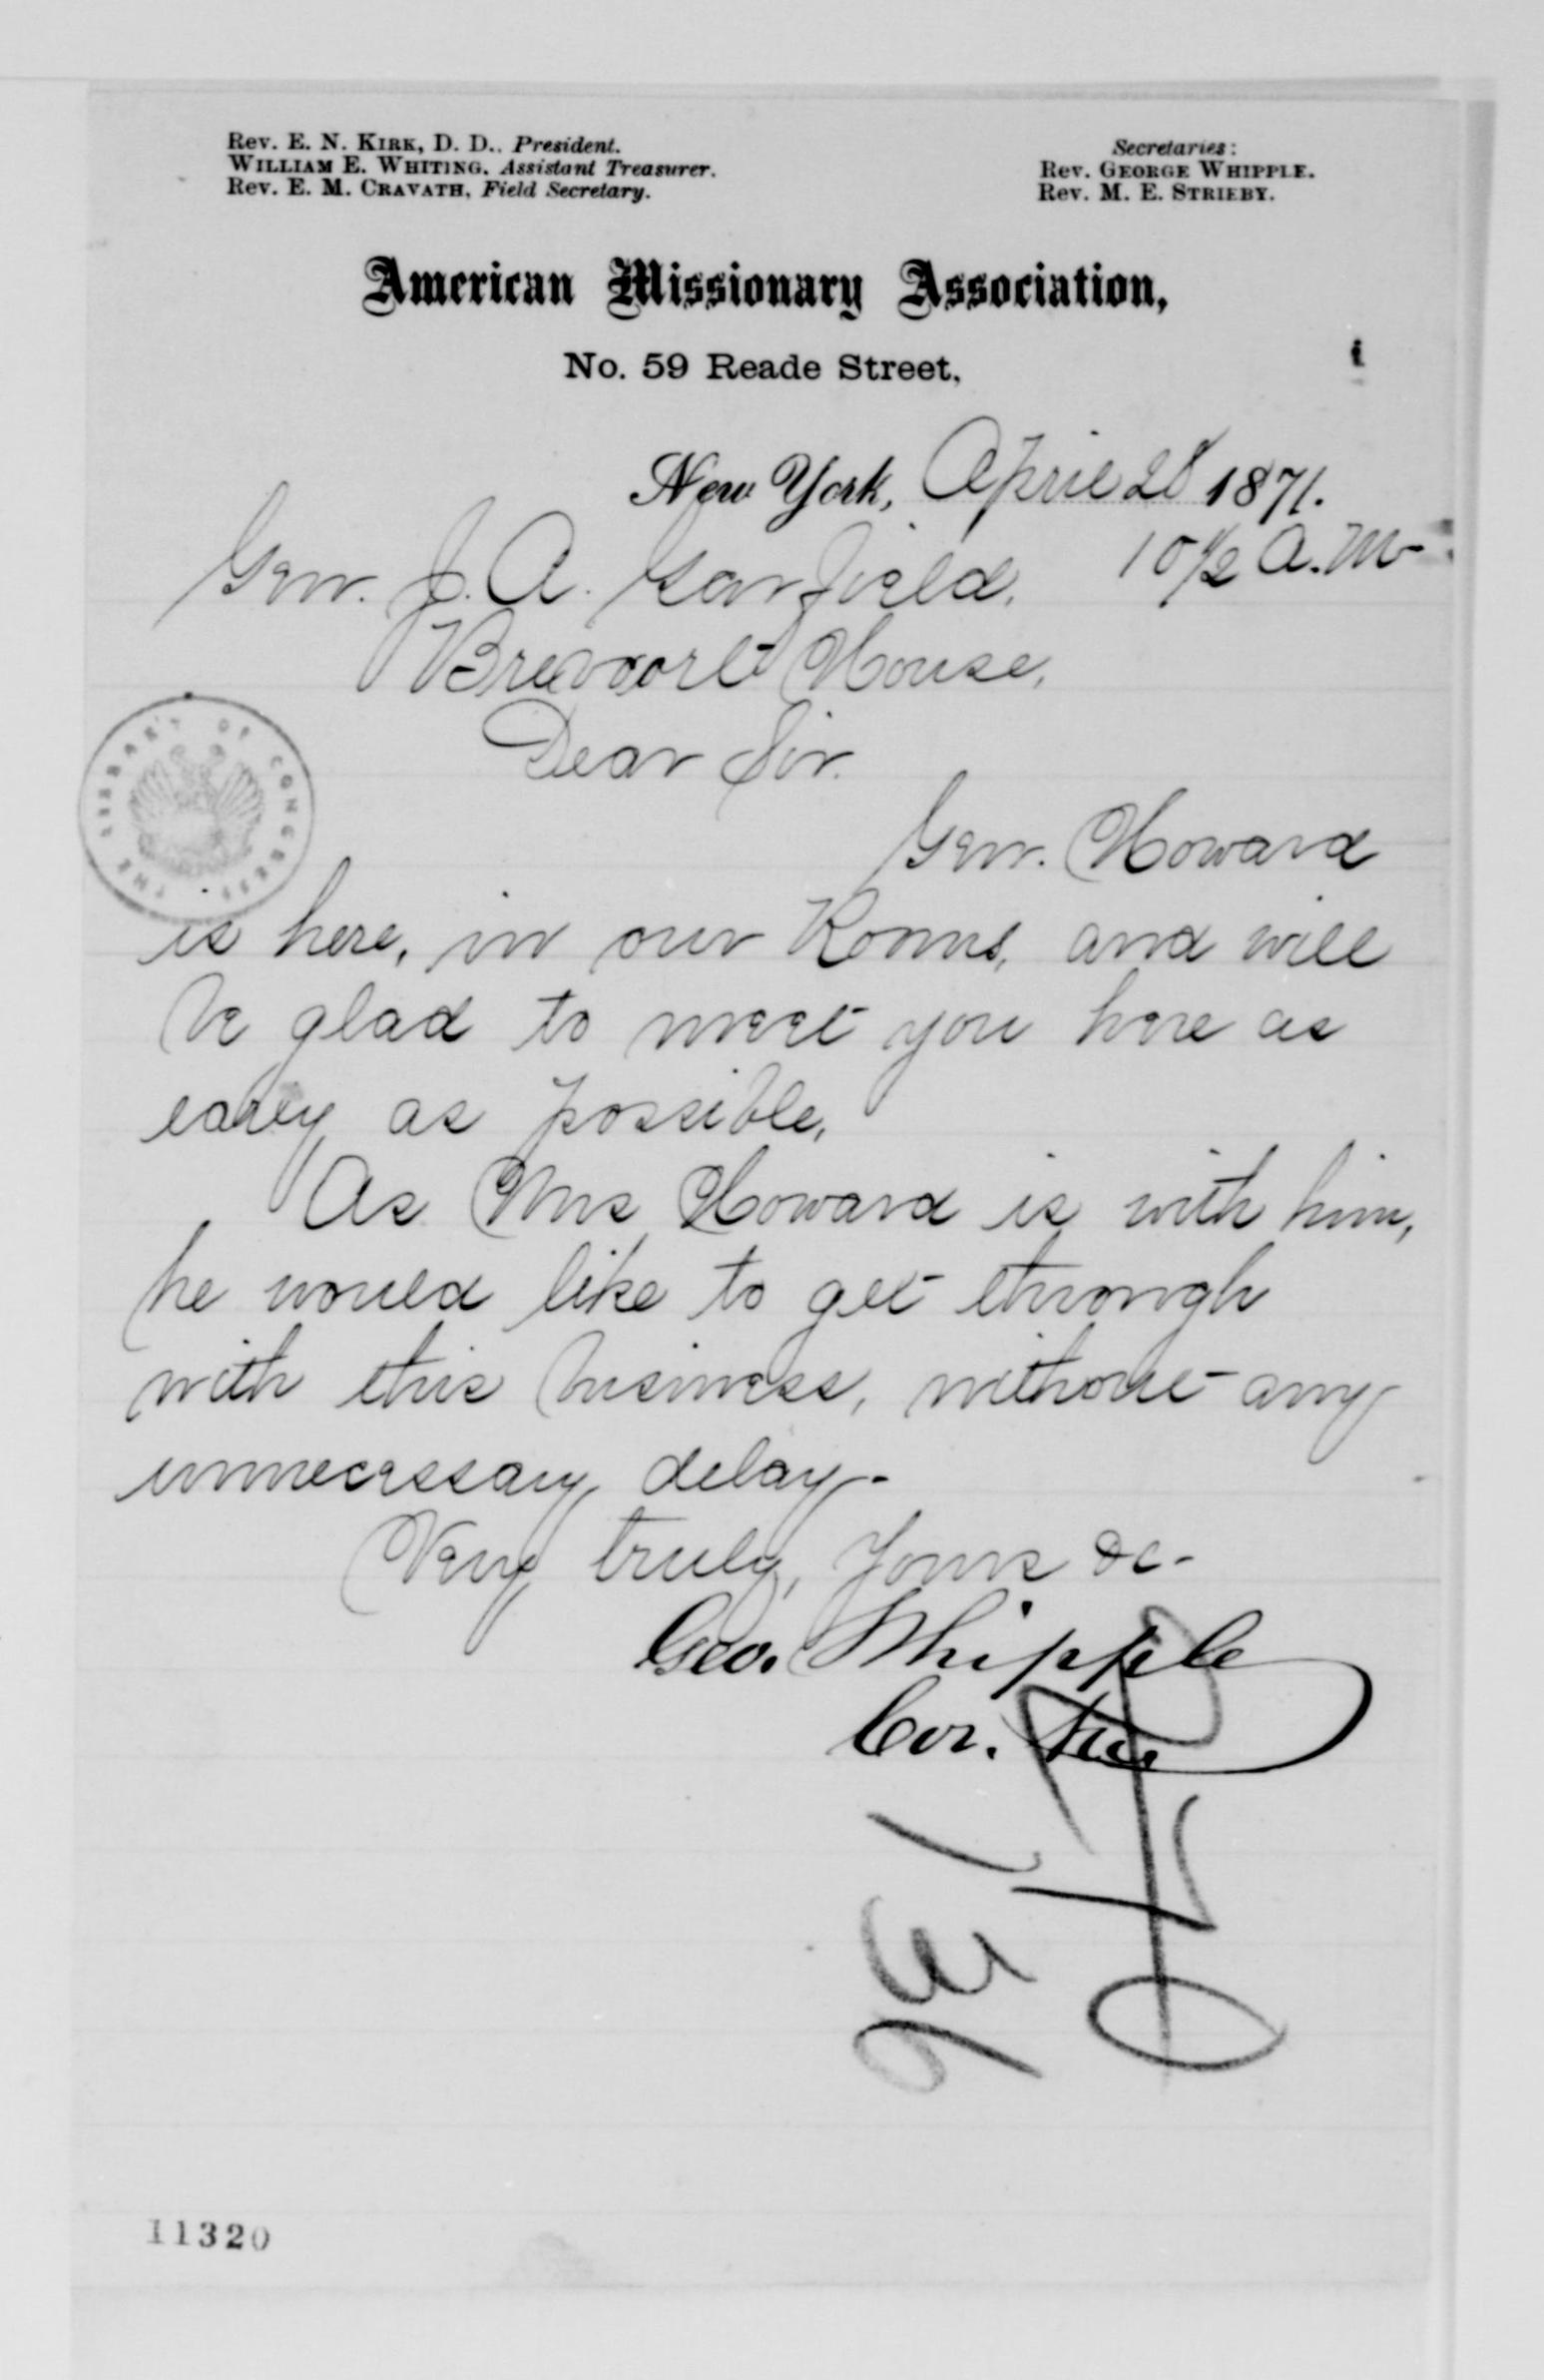 Rev. E. N. Kirk, D. D., President.
William E. Whiting, Assistant Treasurer.
Rev. E. M. Cravath, Field Secretary.
Secretaries:
Rev. George Whipple.
Rev. M. E. Strieby.
American Missionary Association,
No. 59 Reade Street,
New York, April 28 1871.
10 1/2 A.M-
Gen. J. A. Garfield,
Brevoort House,
Dear Sir.
Gen. Howard
is here, in our Rooms, and will
be glad to meet you here as
early as possible,
As Mrs Howard is with him,
he would like to get through
with this business, without any
unnecessary delay-
Very truly, Yours &c-
Geo. Whipple
Cor. Sec.
THE LIBRARY OF CONGRESS
11320